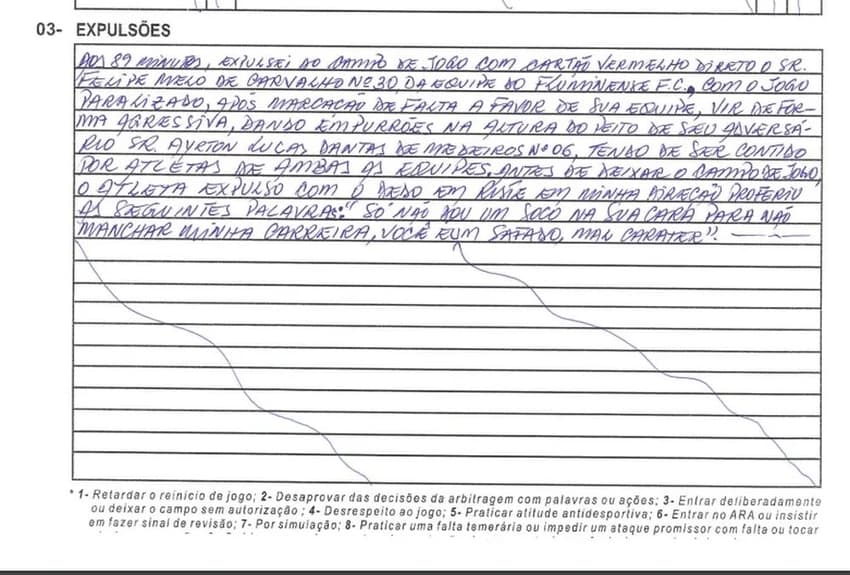 03- EXPULSÕES
AOS 89 MINUTOS, EXPULSEI DO CAMPO DE JOGO COM CARTÃO VERMELHO DIRETO O SR.
FELIPE MELO DE CARVALHO Nº 30 DA EQUIPE DO FLUMINENSE F.C., COM O JOGO
PARALIZADO, APÓS MARCAÇÃO DE FALTA A FAVOR DE SUA EQUIPE, VIR DE FOR-
MA AGRESSIVA, DANDO EMPURRÕES NA ALTURA DO PEITO DE SEU ADVERSÁ-
RIO SR. AYRTON LUCAS DANTAS DE MEDEIROS Nº 06, TENDO DE SER CONTIDO
POR ATLETAS DE AMBAS AS EQUIPES. ANTES DE DEIXAR O CAMPO DE JOGO,
O ATLETA EXPULSO COM O DEDO EM RISTE EM MINHA DIREÇÃO PROFERIU
AS SEGUINTES PALAVRAS: "SÓ NÃO DOU UM SOCO NA SUA CARA PARA NÃO
MANCHAR MINHA CARREIRA, VOCÊ É UM SAFADO, MAU CARATER".
* 1- Retardar o reinicio de jogo; 2- Desaprovar das decisões da arbitragem com palavras ou ações; 3- Entrar deliberadamente
ou deixar o campo sem autorização ; 4- Desrespeito ao jogo; 5- Praticar atitude antidesportiva; 6- Entrar no ARA ou insistir
em fazer sinal de revisão; 7- Por simulação; 8- Praticar uma falta temerária ou impedir um ataque promissor com falta ou tocar